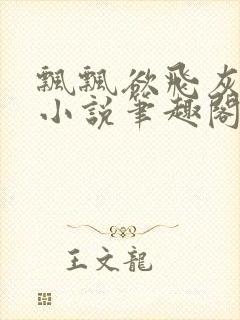 飄飄欲飛灰
小說筆趣閣
王文龍